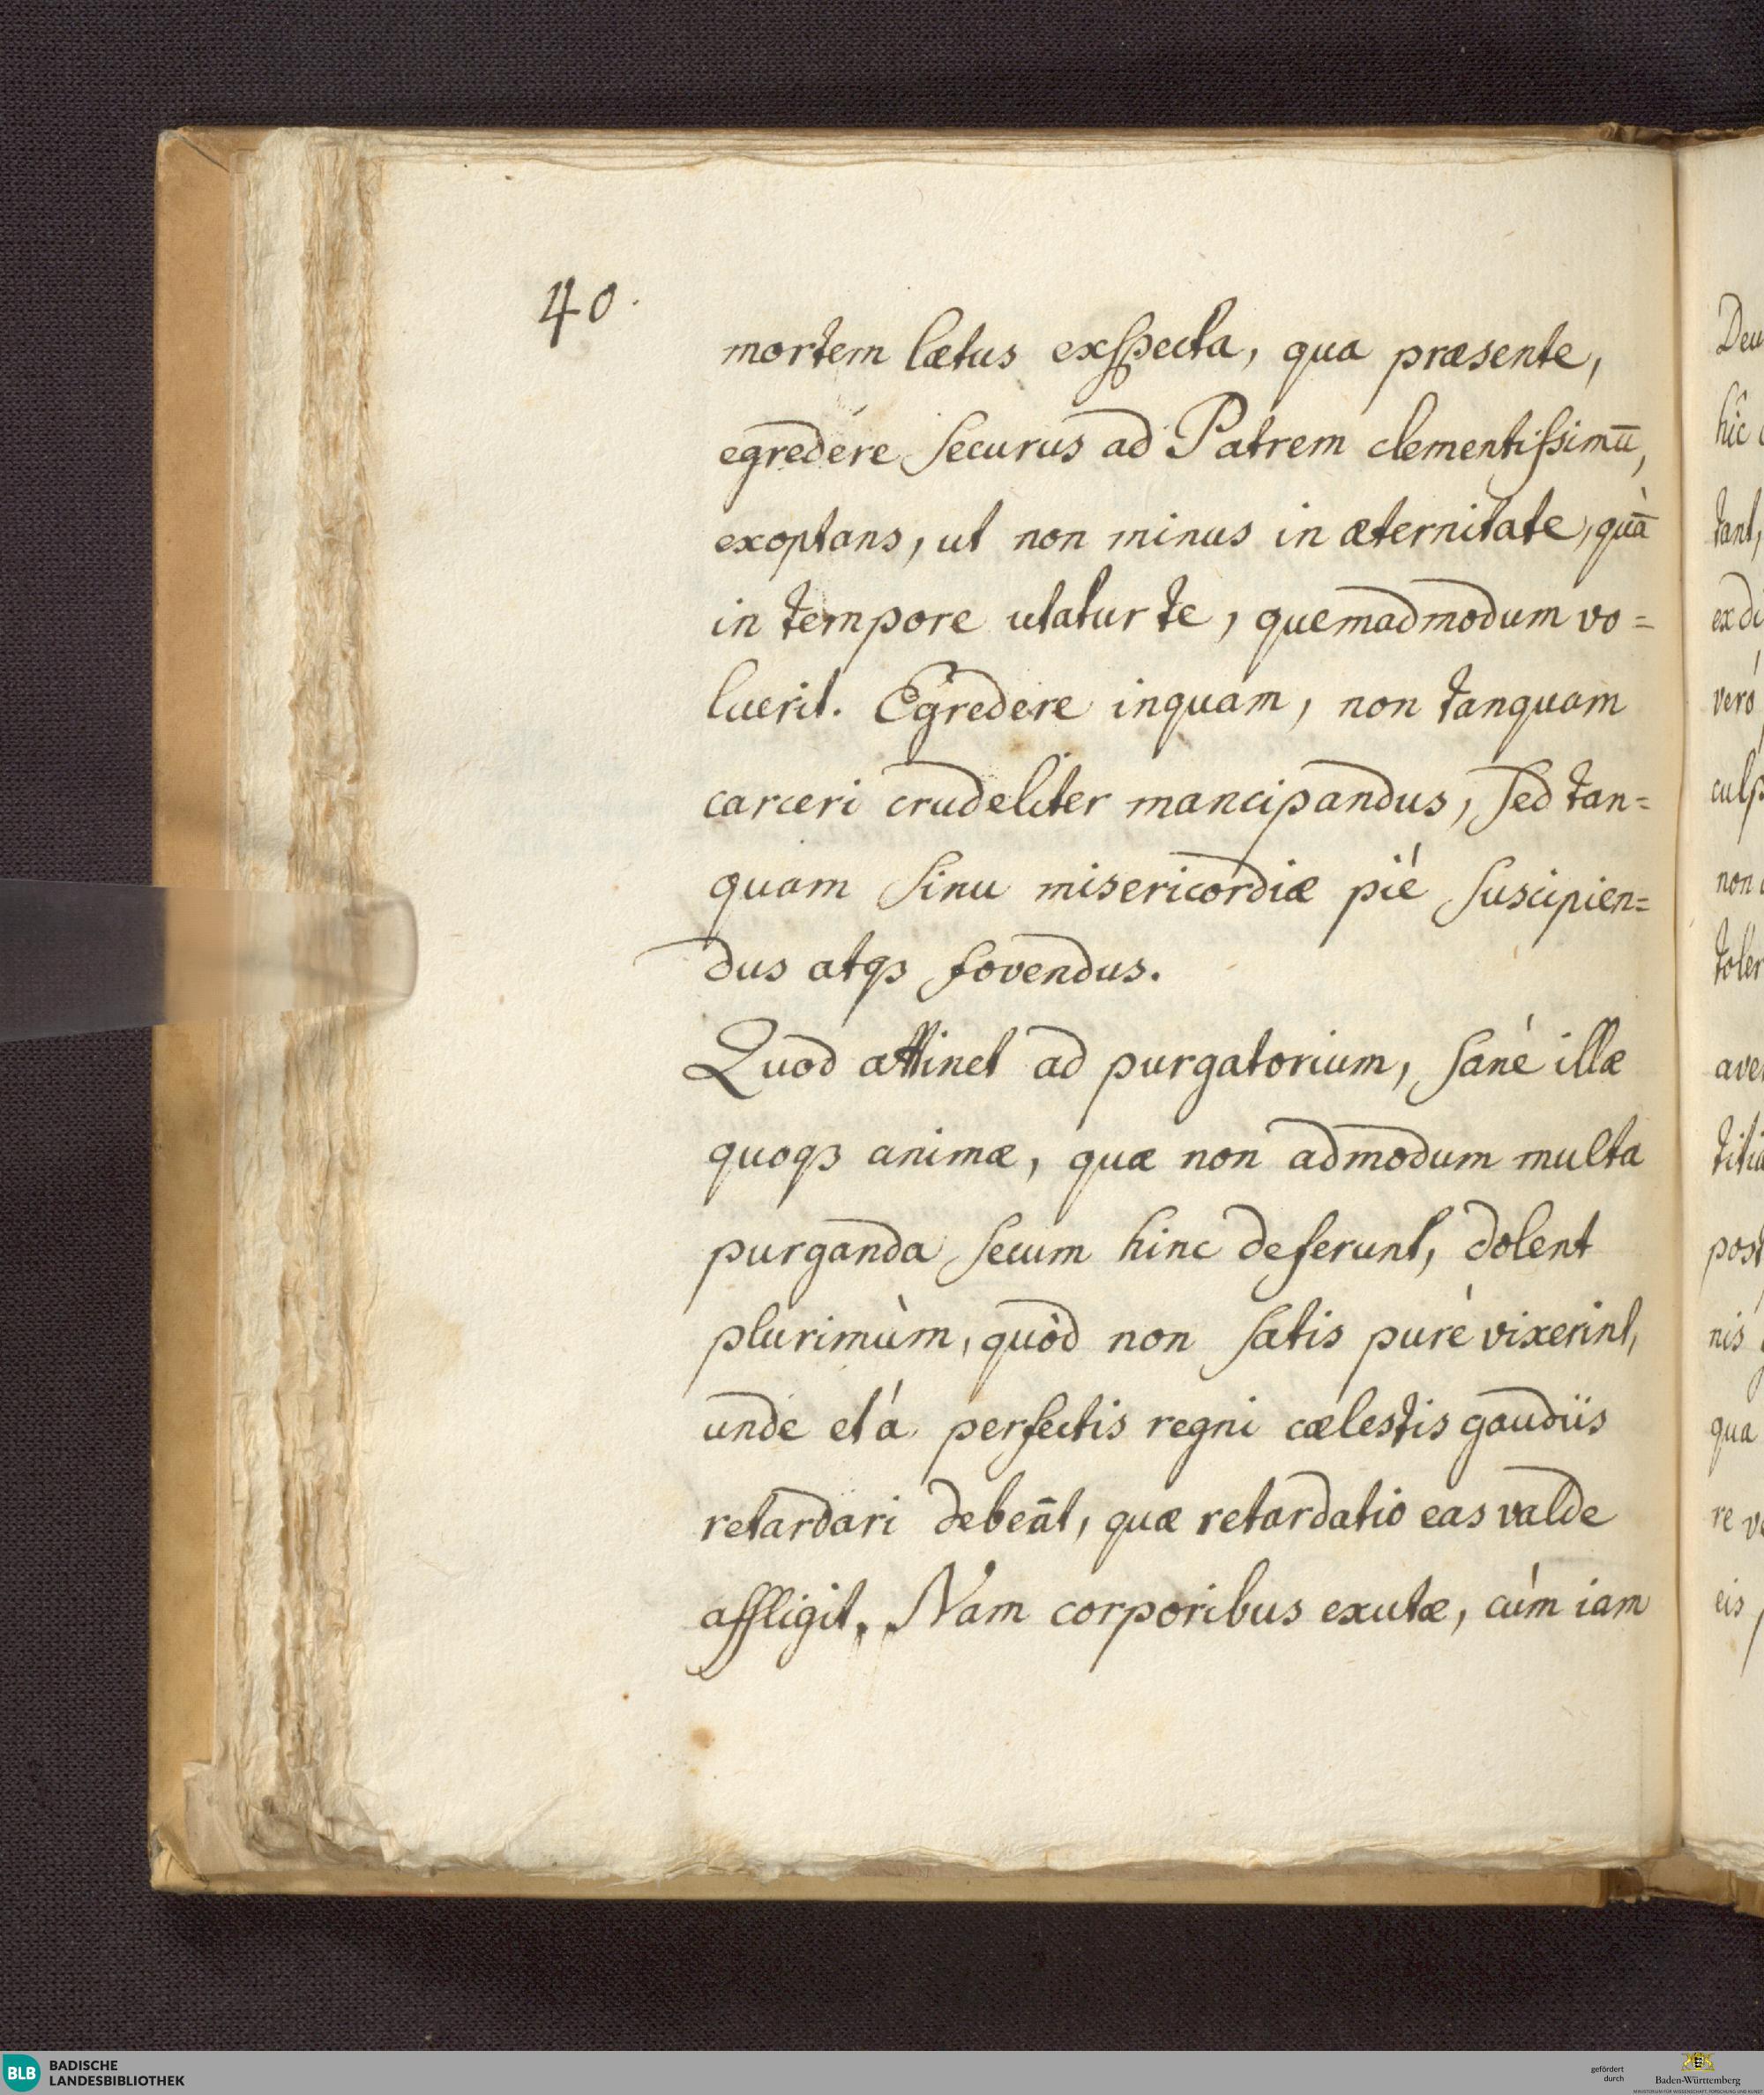 40.
mortem lætus exspecta, qua præsente,
egredere securus ad Patrem clementissimū,
exoptans, ut non minus in æternitate, quā̀
in tempore utatur te, quemadmodum vo=
luerit. Egredere inquam, non tanquam
carceri crudeliter mancipandus, sed tan=
quam sinu misericordiæ pié suscipien=
dus atqꝫ fovendus.
Quod attinet ad purgatorium, sané illæ
quoqꝫ animæ, quæ non admodum multa
purganda secum hinc deferunt, dolent
plurimùm, quòd non satis puré vixerint,
unde et á perfectis regni cælestis gaudiis
retardari debeāt, quæ retardatio eas valde
affligit. Nam corporibus exutæ, cùm iam
Deu
hîc
tant,
ex di
veró
culp
non
toler
ave
titia
post
nis
qua
re
eis
BLB BADISCHE
LANDESBIBLIOTHEK
gefördert
durch
Baden-Württemberg
MINISTERIUM FÜR WISSENSCHAFT, FORSCHUNG UND KUNST